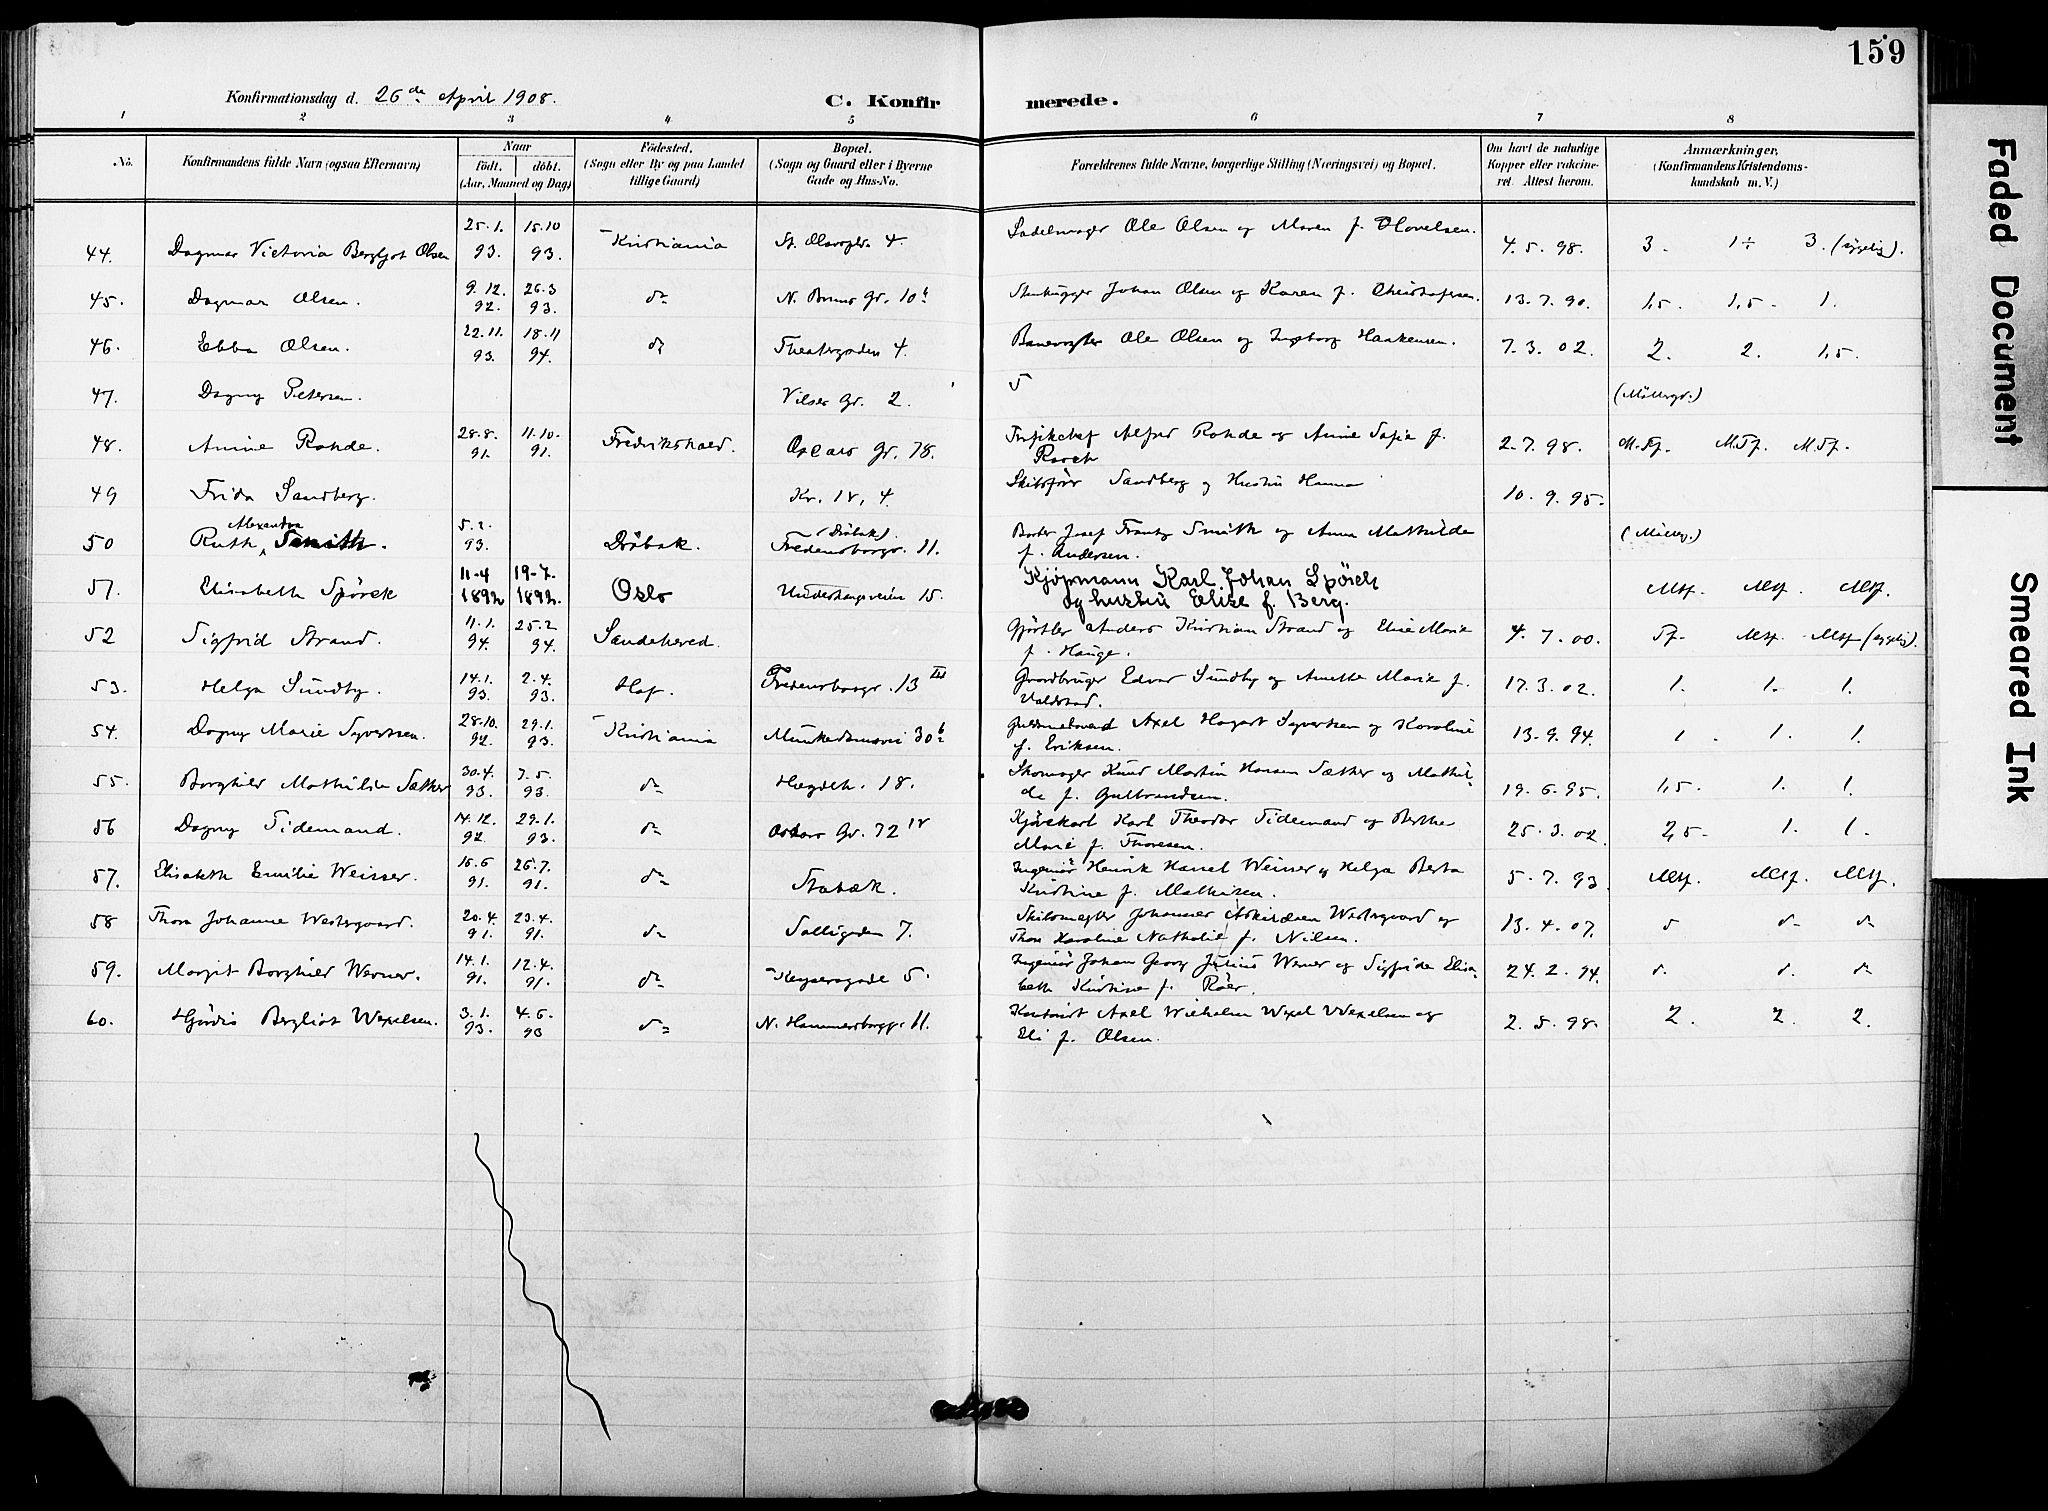 159
Konfirmationsdag d. 26de April 1908.
C. Konfirmerede.
1 2 3 4 5 6 7 8
No. Konfirmandens fulde Navn (ogsaa Efternavn)
Naar
födt. döbt.
(Aar, Maaned og Dag)
Födested.
(Sogn eller By og paa Landet
tillige Gaard)
Bopæl.
(Sogn og Gaard eller i Byerne
Gade og Hus-No.
Forældrenes fulde Navne, borgerlige Stilling (Næringsvei) og Bopæl.
Om havt de naturlige
Kopper eller vakcine-
ret. Attest herom.
Anmærkninger,
(Konfirmandens Kristendoms-
kundskab m. V.)
25.1. 15.10 Sadelmager Ole Olsen og Maren f. Hovelsen.
44. Dagmar Victoria Bergljot Olsen 93. 93. Kristiania St. Olavspl. 4. 4.5.98. 3. 1÷ 3. (sygelig).
45. Dagmar Olsen. 9.12. 26.3 do N. Bruns Gr. 10b Stenhugger Johan Olsen og Karen f. Christofersen. 13.7.90. 1,5. 1,5. 1.
92. 93.
46. Ebba Olsen. 22.11. 18.11 do Theatergaden 4. Banevogter Ole Olsen og Ingeborg Haakensen. 7.3.02. 2. 2. 1,5.
93. 94.
47. Dagny Petersen. Vilses Gr. 2. (Möllergr.)
48. Anine Rohde. 28.8. 11.10. Fredrikshald. Oscars Gr. 78. Alfred Rohde og Anine Sofie f. 2.7.98. M.Tf. M.Tf. M.Tf.
91. 91.
49 Frida Sandberg. Kr. IV, 4. Skibsförer Sandberg og Hustru Hanna 10.9.95.
Alexandra
50 Ruth Smith. 5.2. Dröbak. (Dröbak) Josef Frantz Smith og Anna Mathilde (Möllerg.)
93. Fredensborgv. 11. f. Andersen.
51. Elisabeth Spörck 11-4 19-7. Oslo Underhaugsveien 15. Kjöpmann Karl Johan Spörck Mtf. Mtf. Mtf.
1892 1892. og hustru Elise f. Berg.
52 Sigfrid Strand. 11.1. 25.2 Sandehered. Gjörtler Anders Kristian Strand og Elise Marie 4.7.00. Tf. Mtf. Mtf (sygelig).
94. 94. f. Hauge.
53. Helga Sundby. 14.1. 2.4. Hof. Fredensborgv. 13 III Gaardbruger Edvar Sundby og Anette Marie f. 17.3.02. 1. 1. 1.
93. 93.
54. Dagny Marie Syvertsen. 28.10. 29.1. Kristiania Munkedamsvei 30b Axel Hagart Syvertsen og Karoline 13.9.94. 1. 1. 1.
92. 93. f. Eriksen.
55. Borghild Mathilde Sæther 30.4. 7.5. do Hægdeh. 18. Skomager Knud Martin Hansen Sæther og Mathil-
93. 93. de f. Gulbrandsen. 19.6.95. 1,5. 1. 1.
56 Dagny Tidemand. 14.12. 29.1. do Oskars Gr. 72 IV Karl Theodor Tidemand og Berthe 25.3.02. 2,5. 1. 1.
92. 93. Marie f. Thoresen.
57. Elisabeth Emilie Weisser. 15.6 26.7. do Stabæk. Ingeniör Henrik Weisser og Helga Berta 5.7.93 Mtf. Mtf. Mtf.
91. 91. Kristine f. Mathisen.
58 Thora Johanne Westergaard. 20.4. 23.4. do Solligaden 7. Johannes Westergaard og 13.4.07. do do do
91. 91. Thora Karoline Nathalie f. Nilsen.
59. Margit Borghild Werner. 14.1. 12.4. do Keysersgade 5. Ingeniör Johan Georg Julius Werner og Sigfride Elisa- 24.2.94. do do do
91. 91. beth Kristine f. Röer.
60. Hjördis Bergliot Wexelsen. 3.1. 4.6. do N. Hammersborgg. 11. Kontorist Axel Wilhelm Wexel Wexelsen og 2.5.98. 2. 2. 2.
93. 93 Eli f. Olsen.
Faded Document
Smeared Ink